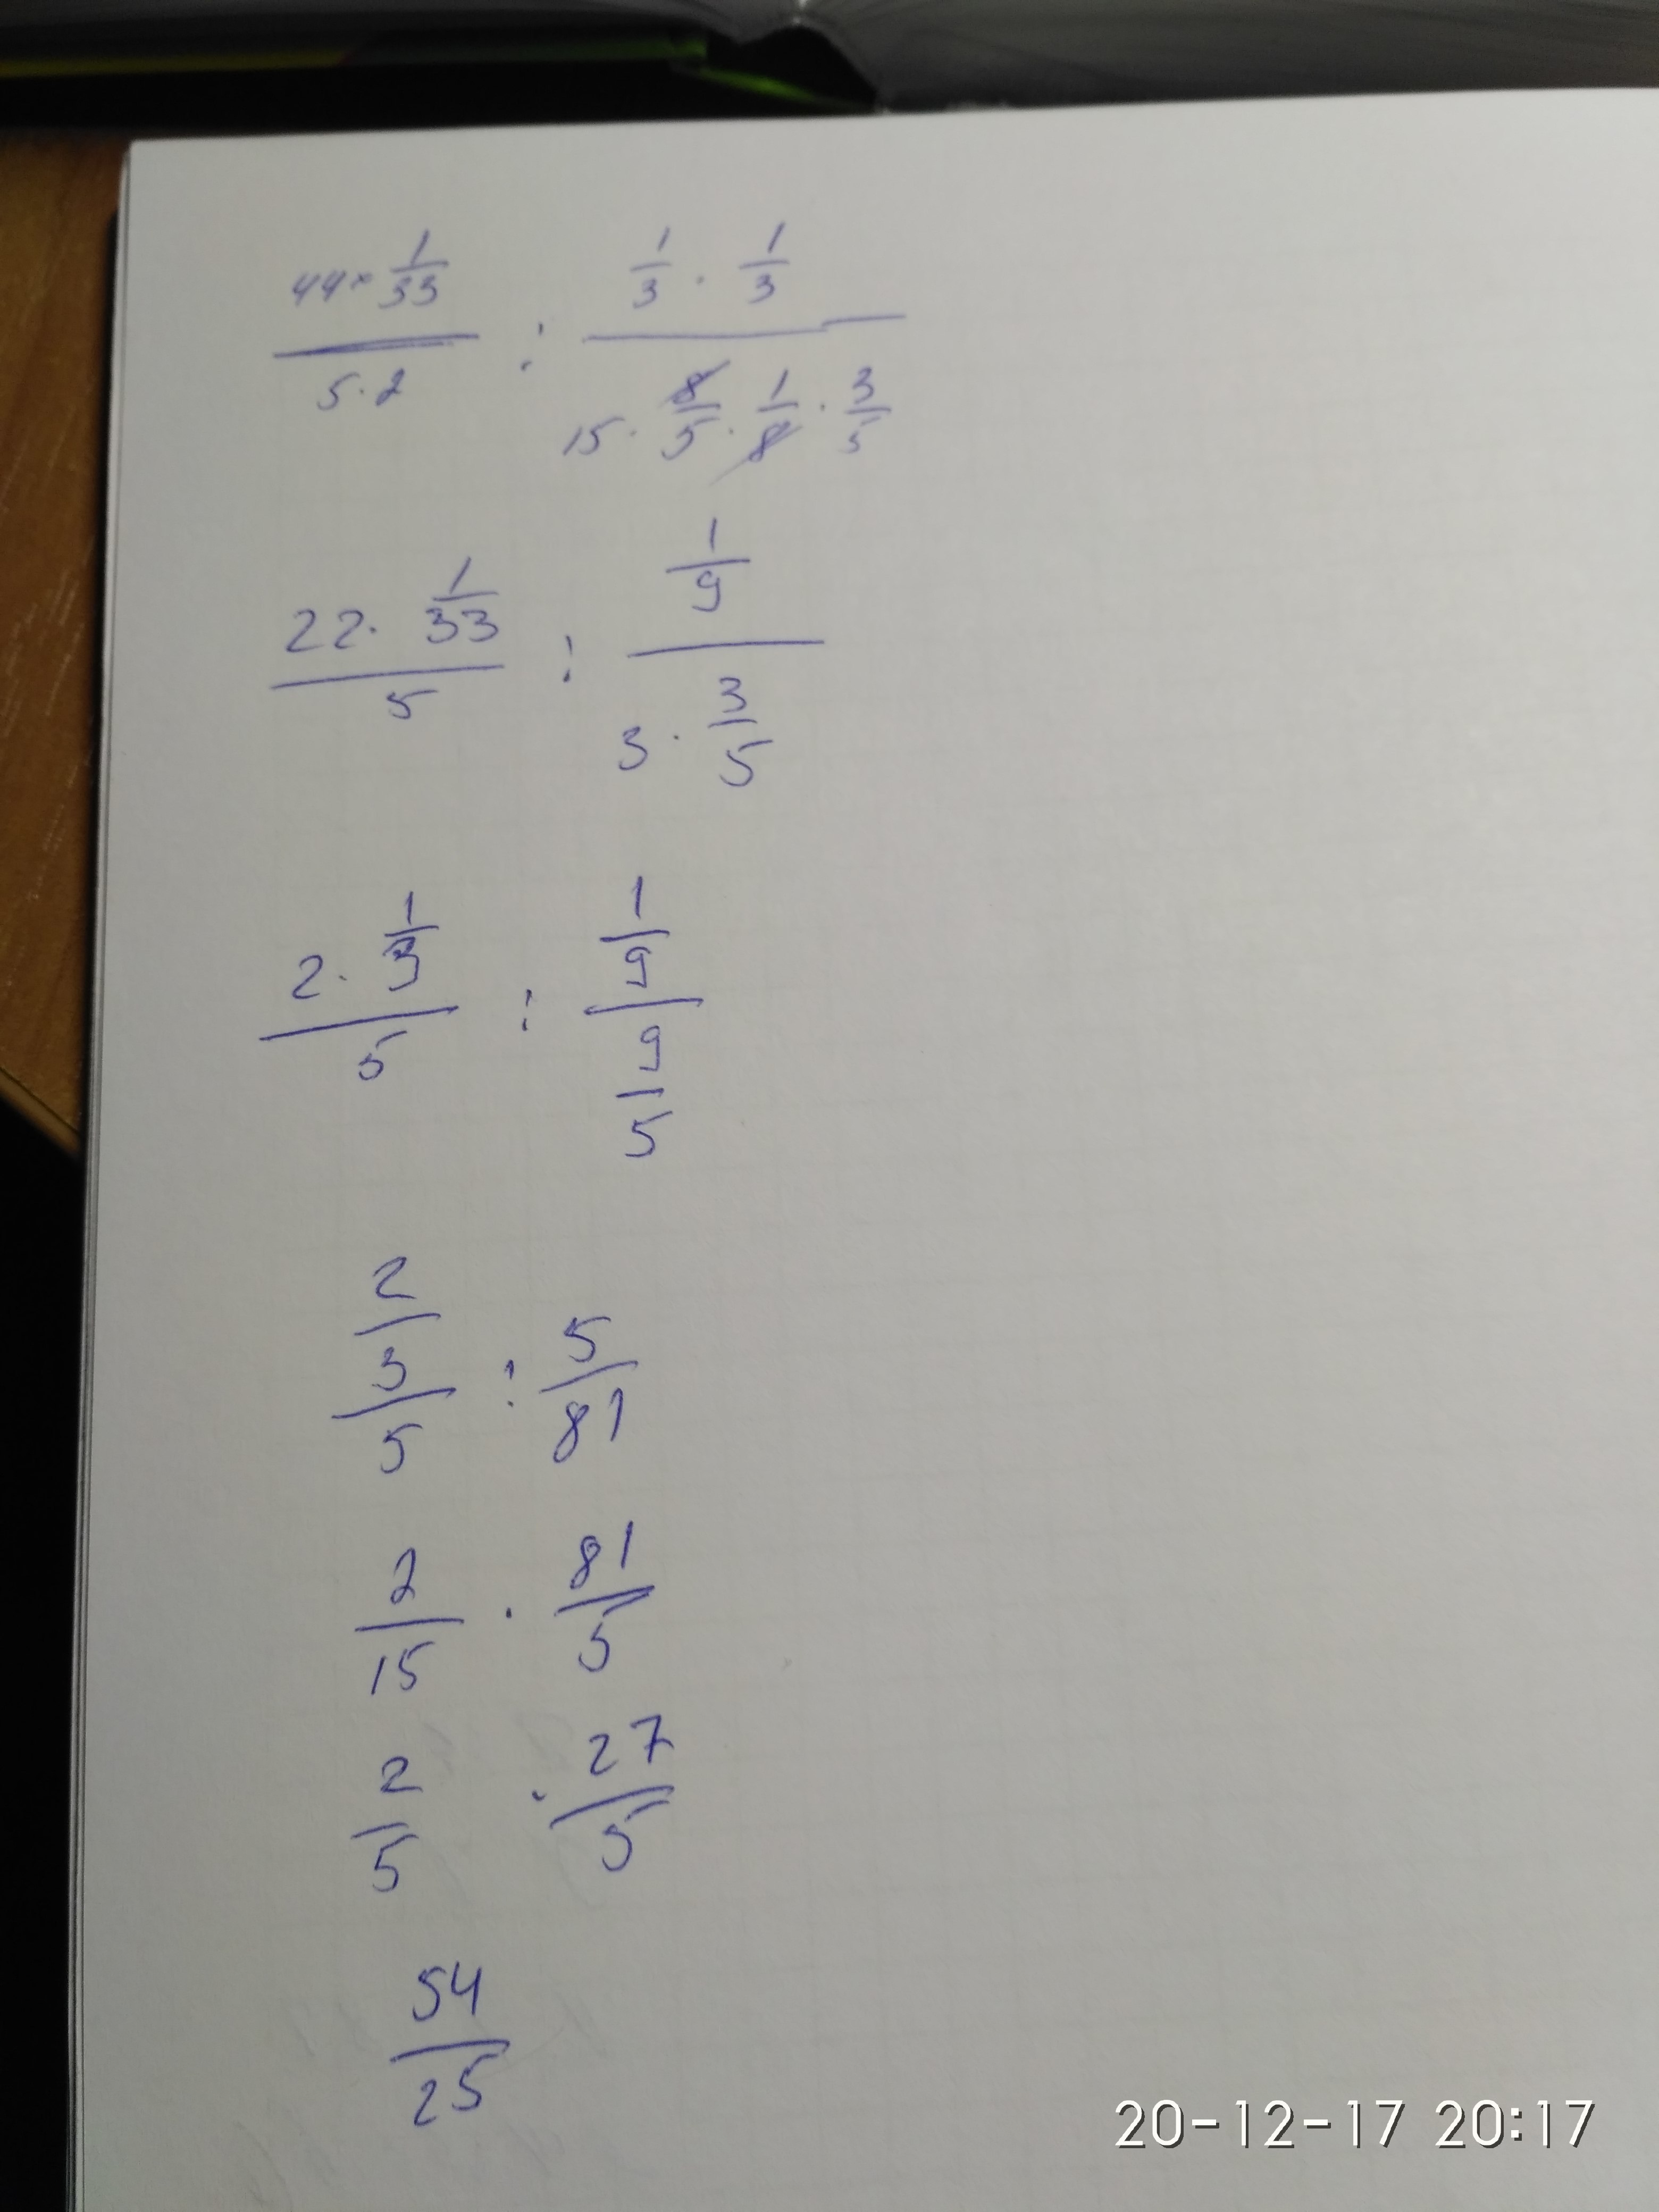 44 × 1/33 / 5·2 : 1/3 · 1/3 / 15 · 8/5 · 1/8 · 3/5
22 · 1/33 / 5 : 1/9 / 3 · 3/5
2 · 1/3 / 5 : 1/9 / 9/5
2/3 / 5 : 5/81
2/15 · 81/5
2/5 · 27/5
54/25
20-12-17 20:17